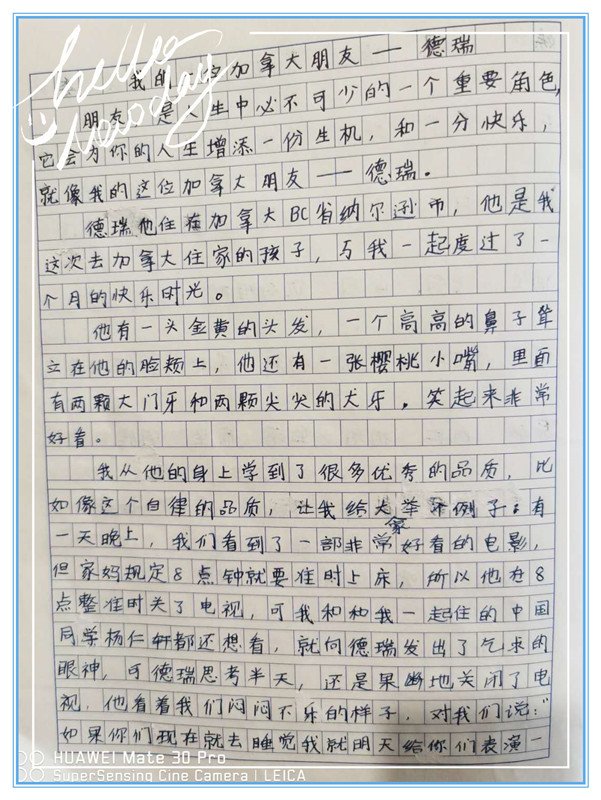 hello
Monday
我的 位加拿大朋友——德瑞
朋友，是人生中必不可少的一个重要角色，
它会为你的人生增添一份生机，和一分快乐，
就像我的这位加拿大朋友——德瑞。
德瑞他住在加拿大BC省纳尔逊市，他是我
这次去加拿大住家的孩子，与我一起度过了一
个月的快乐时光。
他有一头金黄的头发，一个高高的鼻子耸
立在他的脸颊上，他还有一张樱桃小嘴，里面
有两颗大门牙和两颗尖尖的犬牙，笑起来非常
好看。
我从他的身上学到了很多优秀的品质，比
如像这个自律的品质，让我给大家举个例子：有
一天晚上，我们看到了一部非常好看的电影，
但家妈规定8点钟就要准时上床，所以他在8
点整准时关了电视，可我和和我一起住的中国
同学杨仁轩都还想看，就向德瑞发出了乞求的
眼神，可德瑞思考半天，还是果断地关闭了电
视，他看着我们闷闷不乐的样子，对我们说：“
如果你们现在就去睡觉我就明天给你们表演一
HUAWEI Mate 30 Pro
SuperSensing Cine Camera | LEICA